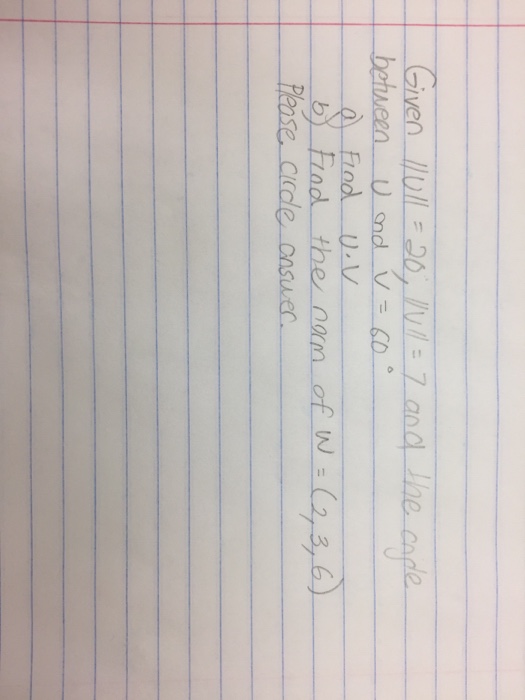 Given ||U|| = 20, ||V|| = 7 and the angle
between U and V = 60°
a) Find U·V
b) Find the norm of W = (2,3,6)
Please circle answer.